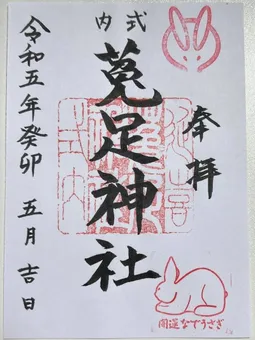 奉拝
式内
菟足神社
令和五年癸卯 五月吉日
開運なでうさぎ